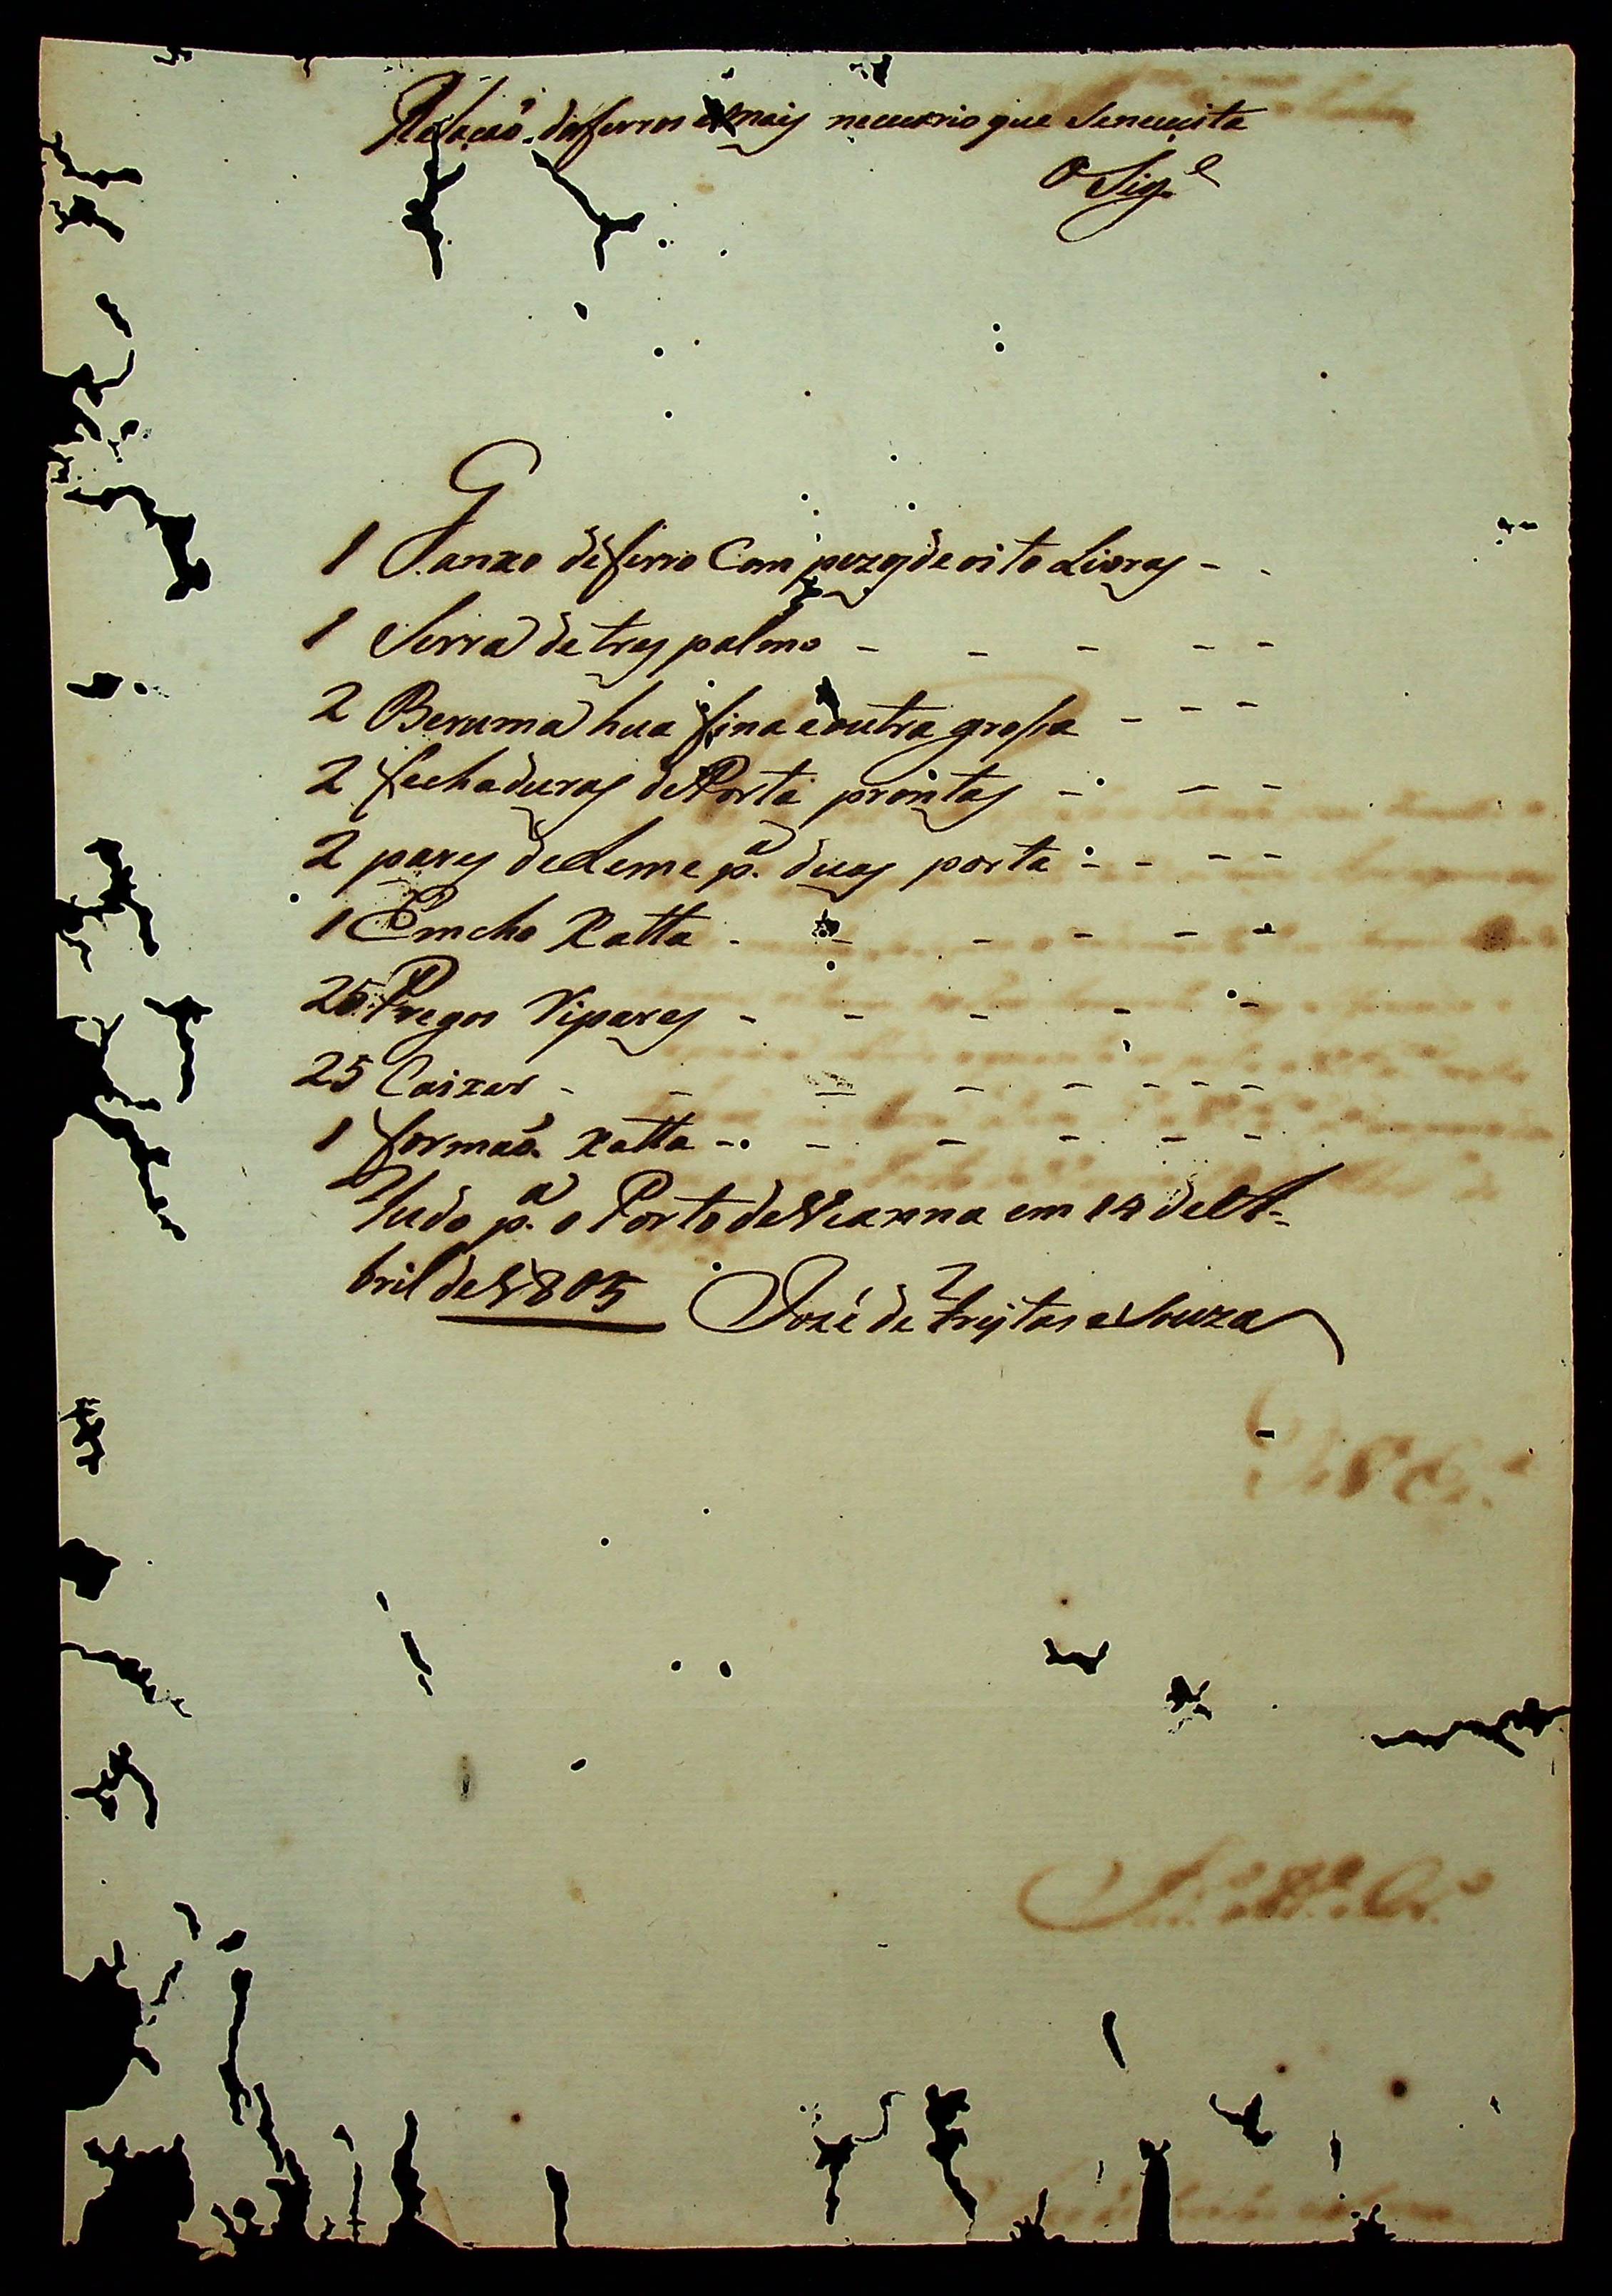 Relacaõ dos ferros e mais necesario que Senececita
o Sig.e
1 Ganxo de ferro Com pezo de oito Livras - -
1 Serra de tres palmo - - - - -
2 Beruma hua fina e outra grossa - - -
2 fechaduras de Porta prontas - - -
2 pares de Leme p.a duas porta - - - -
1 Emcho Xatta - - - - - -
25 Pregos Ripares - - - - -
25 Caixar - - - - - - - -
1 formaõ Xatta - - - - - -
Tudo p.a o Porto de Vianna em 14 de A-
bril de 1805 José de Frejtas e Souza